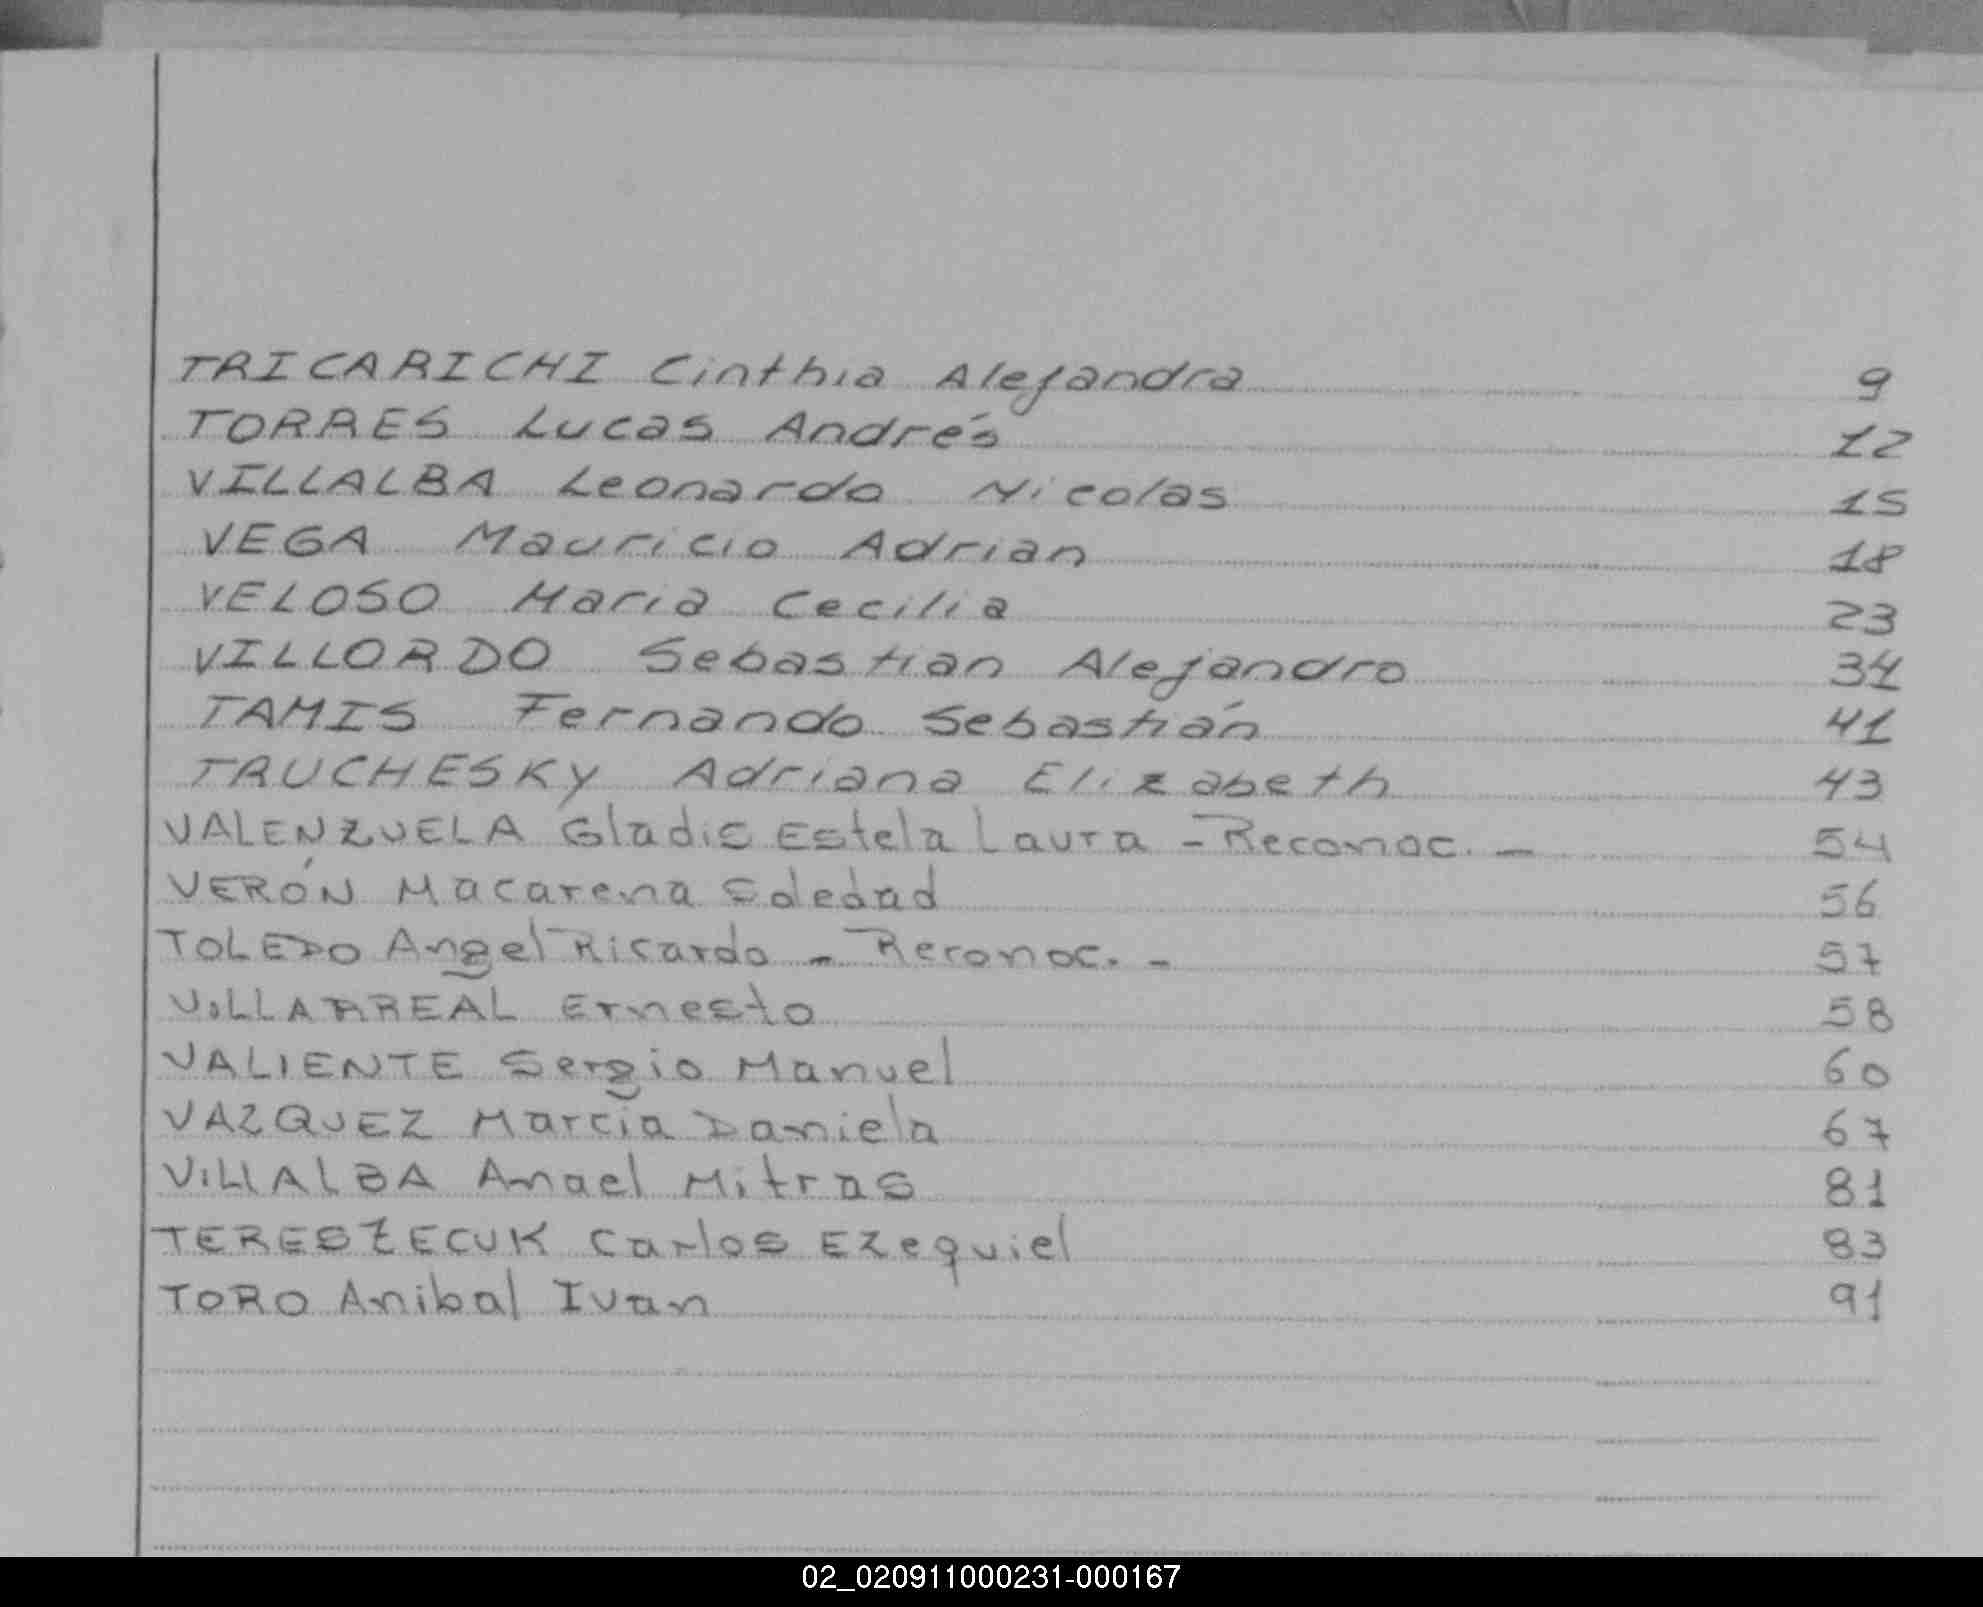 TRICARICHI Cinthia Alejandra 9
TORRES Lucas Andrés 12
VILLALBA Leonardo Nicolas 15
VEGA Mauricio Adrian 18
VELOSO Maria Cecilia 23
VILLORDO Sebastian Alejandro 34
TAMIS Fernando Sebastián 41
TRUCHESKY Adriana Elizabeth 43
VALENZUELA Gladis Estela Laura - Reconoc. - 54
VERÓN Macarena Soledad 56
TOLEDO Angel Ricardo - Reconoc. - 57
ViLLARREAL Ernesto 58
VALIENTE Sergio Manuel 60
VAZQUEZ Marcia Daniela 67
ViLLALBA Anael Mitras 81
TERESZECUK Carlos Ezequiel 83
TORO Anibal Ivan 91
02_020911000231-000167